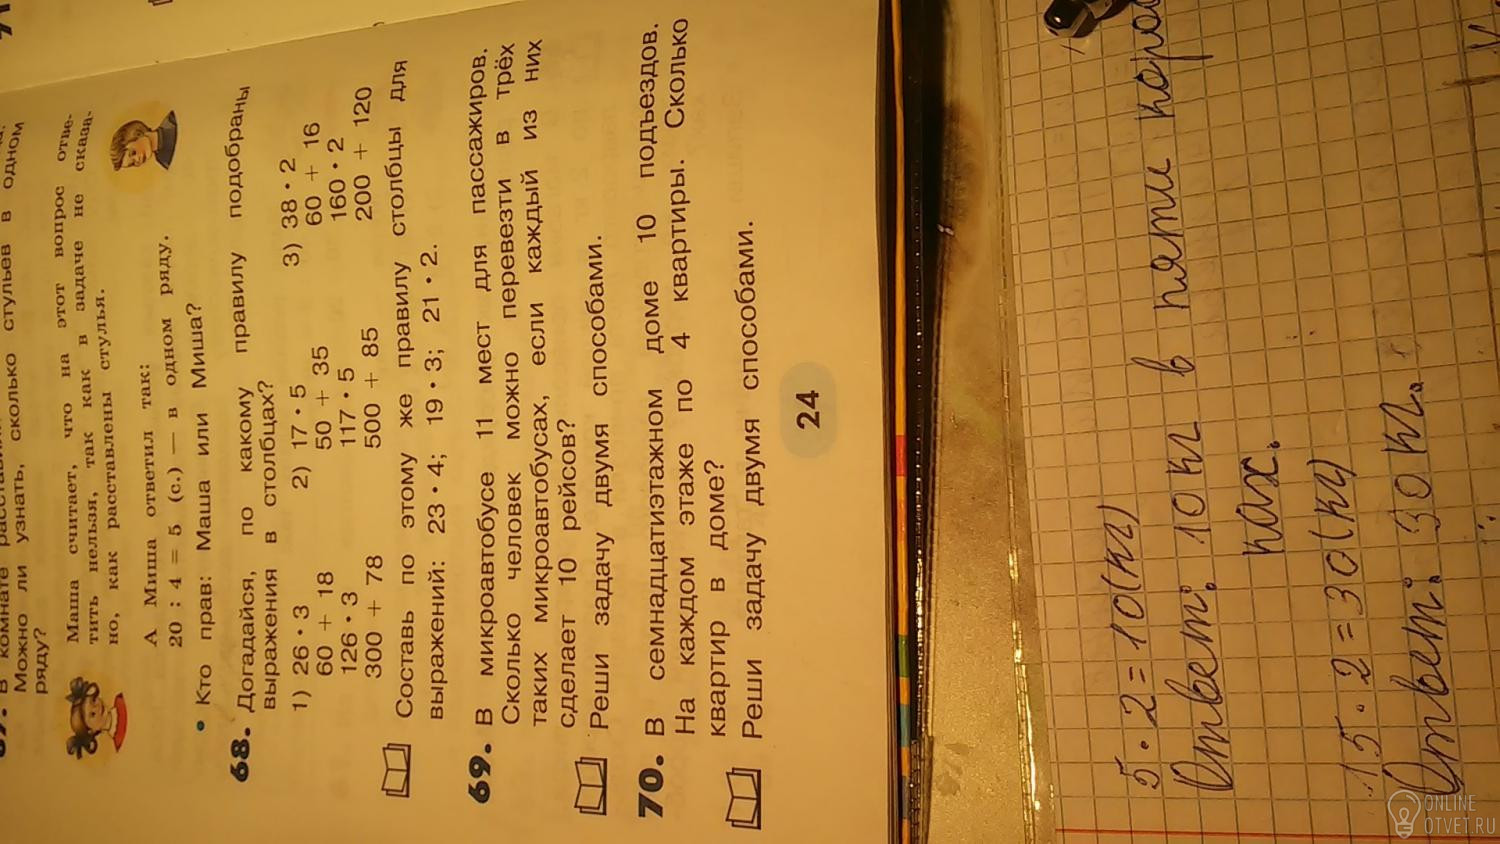 В комнате
стульев в одном
Можно ли узнать, сколько
ряду?
Маша считает, что на этот вопрос отве-
тить нельзя, так как в задаче не сказа-
но, как расставлены стулья.
А Миша ответил так:
20 : 4 = 5 (с.) — в одном ряду.
• Кто прав: Маша или Миша?
68. Догадайся, по какому правилу подобраны
выражения в столбцах?
1) 26 · 3 2) 17 · 5 3) 38 · 2
60 + 18 50 + 35 60 + 16
126 · 3 117 · 5 160 · 2
300 + 78 500 + 85 200 + 120
Составь по этому же правилу столбцы для
выражений: 23 · 4; 19 · 3; 21 · 2.
69. В микроавтобусе 11 мест для пассажиров.
Сколько человек можно перевезти в трёх
таких микроавтобусах, если каждый из них
сделает 10 рейсов?
Реши задачу двумя способами.
70. В семнадцатиэтажном доме 10 подъездов.
На каждом этаже по 4 квартиры. Сколько
квартир в доме?
Реши задачу двумя способами.
24
5 · 2 = 10 (кг)
Ответ: 10 кг в пяти коро
ках.
15 · 2 = 30 (кг)
Ответ: 30 кг.
ONLINE
OTVET.RU